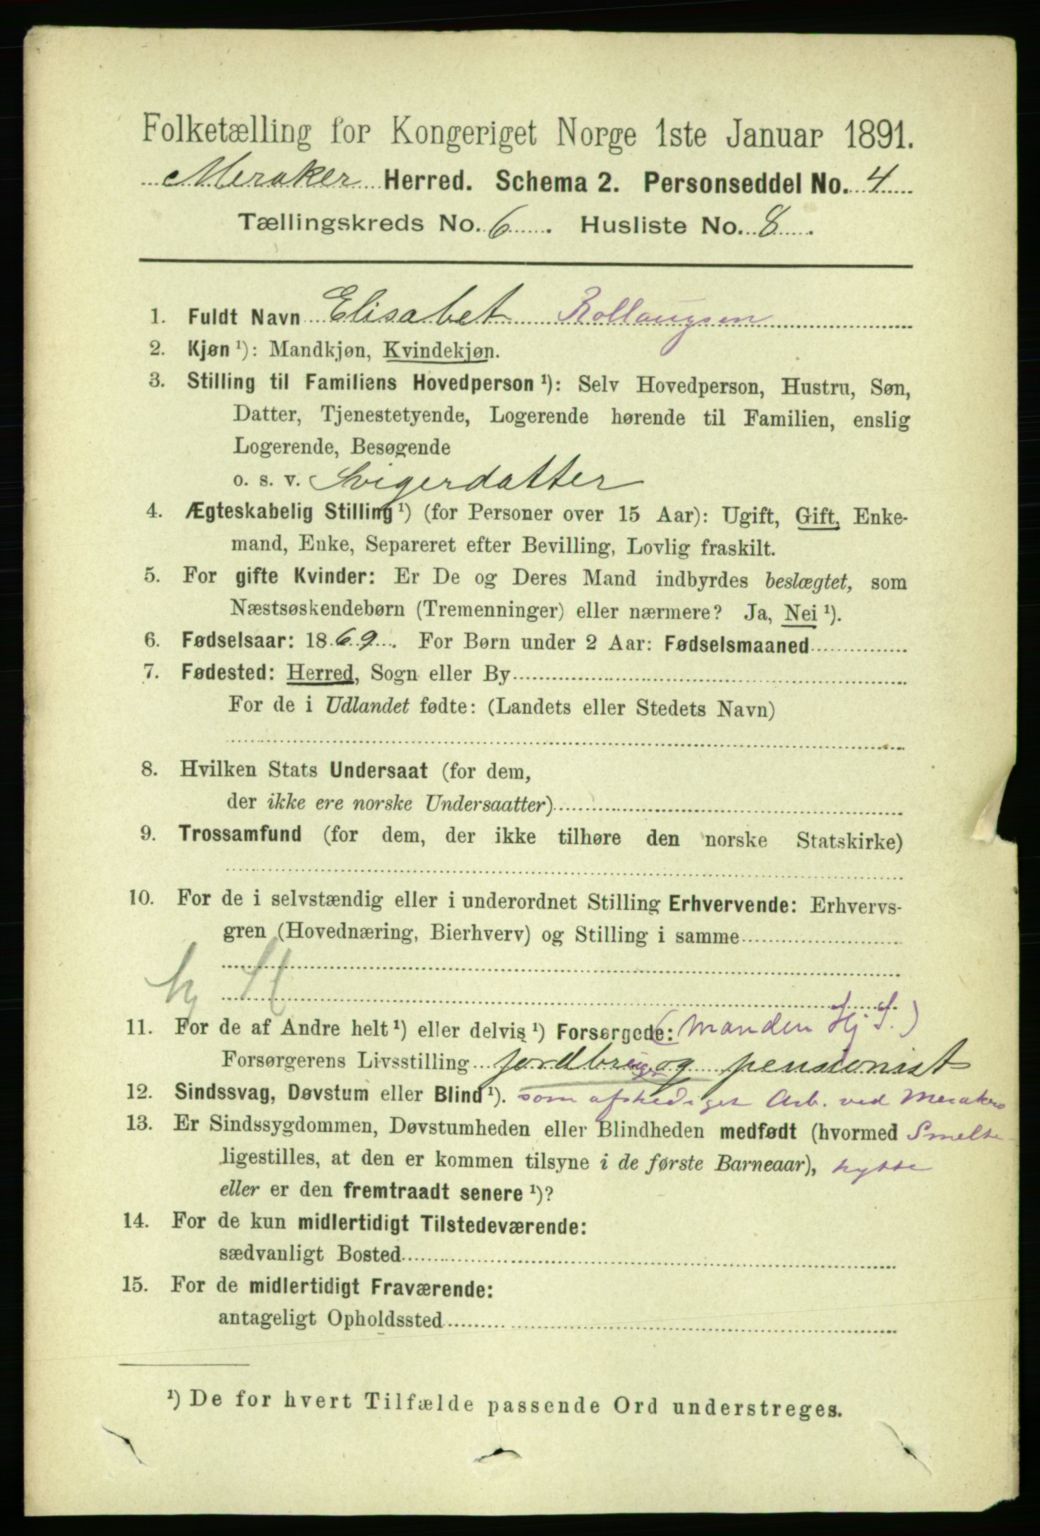 Folketælling for Kongeriget Norge 1ste Januar 1891.
Meraker Herred. Schema 2. Personseddel No. 4
Tællingskreds No. 6. Husliste No. 8.
1. Fuldt Navn Elisabet Rollaugsen
2. Kjøn ¹): Mandkjøn, Kvindekjøn.
3. Stilling til Familiens Hovedperson ¹): Selv Hovedperson, Hustru, Søn,
Datter, Tjenestetyende, Logerende hørende til Familien, enslig
Logerende, Besøgende
o. s. v. Svigerdatter
4. Ægteskabelig Stilling ¹) (for Personer over 15 Aar): Ugift, Gift, Enke-
mand, Enke, Separeret efter Bevilling, Lovlig fraskilt.
5. For gifte Kvinder: Er De og Deres Mand indbyrdes beslægtet, som
Næstsøskendebørn (Tremenninger) eller nærmere? Ja, Nei ¹).
6. Fødselsaar: 1869. For Børn under 2 Aar: Fødselsmaaned
7. Fødested: Herred, Sogn eller By
For de i Udlandet fødte: (Landets eller Stedets Navn)
8. Hvilken Stats Undersaat (for dem,
der ikke ere norske Undersaatter)
9. Trossamfund (for dem, der ikke tilhøre den norske Statskirke)
10. For de i selvstændig eller i underordnet Stilling Erhvervende: Erhvervs-
gren (Hovednæring, Bierhverv) og Stilling i samme
hj H
11. For de af Andre helt ¹) eller delvis ¹) Forsørgede: (Manden Hj S.)
Forsørgerens Livsstilling jordbruger og pensionist
12. Sindssvag, Døvstum eller Blind ¹). som afskediget Arb. ved Merakers
13. Er Sindssygdommen, Døvstumheden eller Blindheden medfødt (hvormed Smelte-
ligestilles, at den er kommen tilsyne i de første Barneaar), hytte
eller er den fremtraadt senere ¹)?
14. For de kun midlertidigt Tilstedeværende:
sædvanligt Bosted
15. For de midlertidigt Fraværende:
antageligt Opholdssted
¹) De for hvert Tilfælde passende Ord understreges.